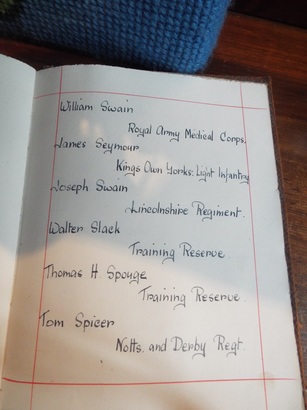 William Swain
Royal Army Medical Corps.
James Seymour
Kings Own Yorks: Light Infantry
Joseph Swain
Lincolnshire Regiment.
Walter Slack
Training Reserve
Thomas H Spouge
Training Reserve
Tom Spicer
Notts. and Derby Regt.